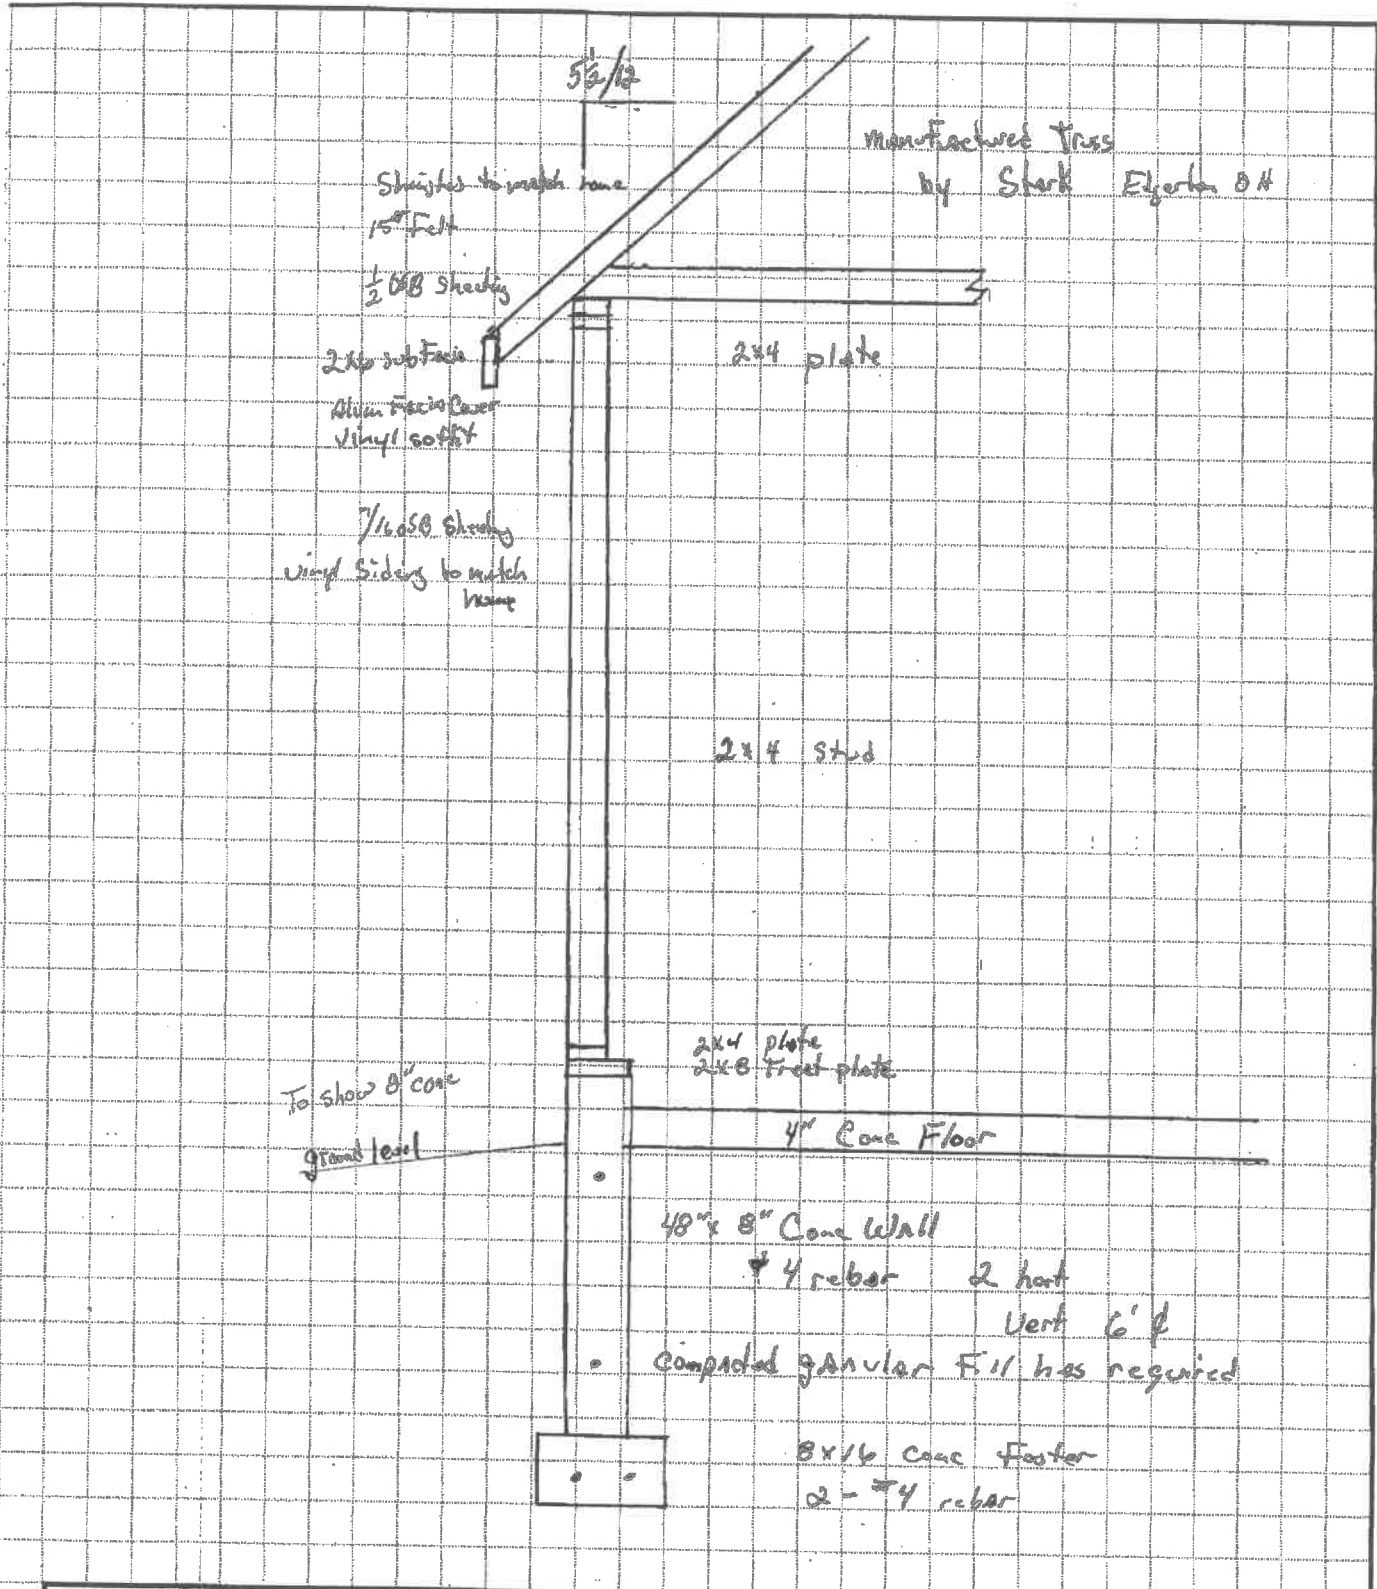 5 1/2 /12
manufactured Truss
by Stark Edgerton OH
Shingles to match home
15# Felt
1/2 OSB Sheeting
2x6 sub Facia
2x4 plate
Alum Facia Cover
Vinyl soffit
7/16 OSB Sheeting
vinyl Siding to match
home
2x4 Stud
2x4 plate
2x8 Treet plate
To show 8" conc
ground level
4" Conc Floor
48" x 8" Conc Wall
# 4 rebar 2 hort
Vert 6' ¢
Compacted granular Fill has required
8x16 conc Footer
2 - #4 rebar